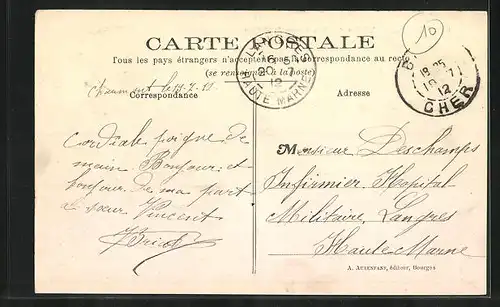 10
CARTE POSTALE
Tous les pays étrangers n'acceptent pas la correspondance au recto
(se renseigner à la poste)
LANGRES
HAUTE MARNE
12
CHER
12
Correspondance
Adresse
Cordiale poignée de
main. Bonjour et
bonjour de ma part
à sœur Vincent
Monsieur Deschamps
Infirmier Hopital
Militaire, Langres
Haute Marne
A. AUXENFANT, éditeur, Bourges